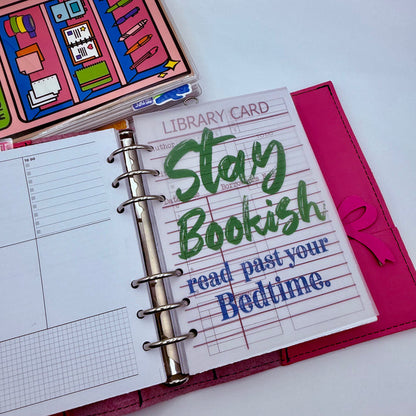 LIBRARY CARD
Author
Stay
Bookish
read past your
Bedtime.
TO DO